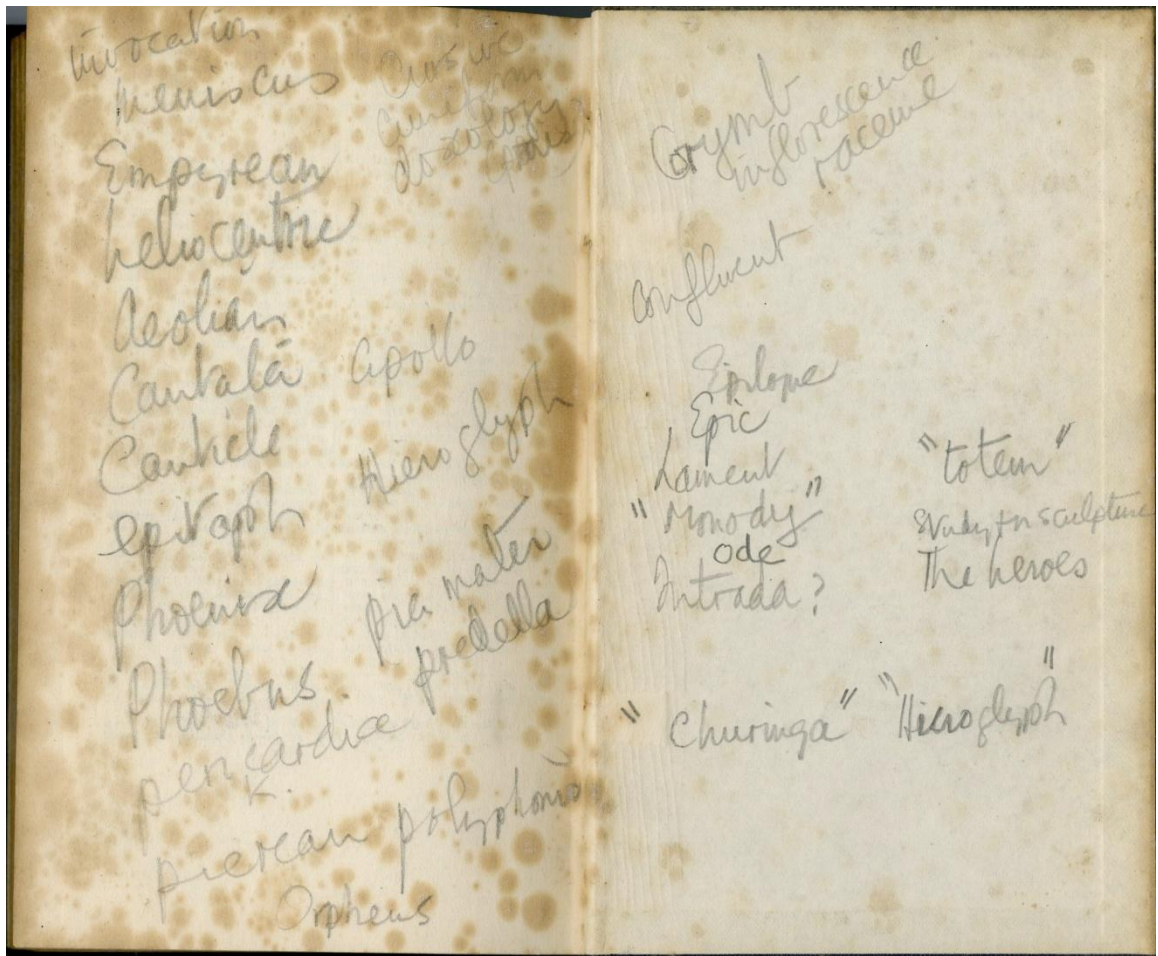 Invocation
Meniscus
Empyrean
heliocentric
Aeolian
Cantata
Canticle
epitaph
Phoenix
Phoebus
pericardiac
K.
pierean polyphonic
Orpheus
cuneiform
doxology
Apollo
Hieroglyph
pia mater
predella
Corymb
inflorescence
raceme
Confluent
Epilogue
Epic
Lament
"Monody"
Ode
Intrada?
"totem"
Study for sculpture
The heroes
"Churinga" "Hieroglyph"